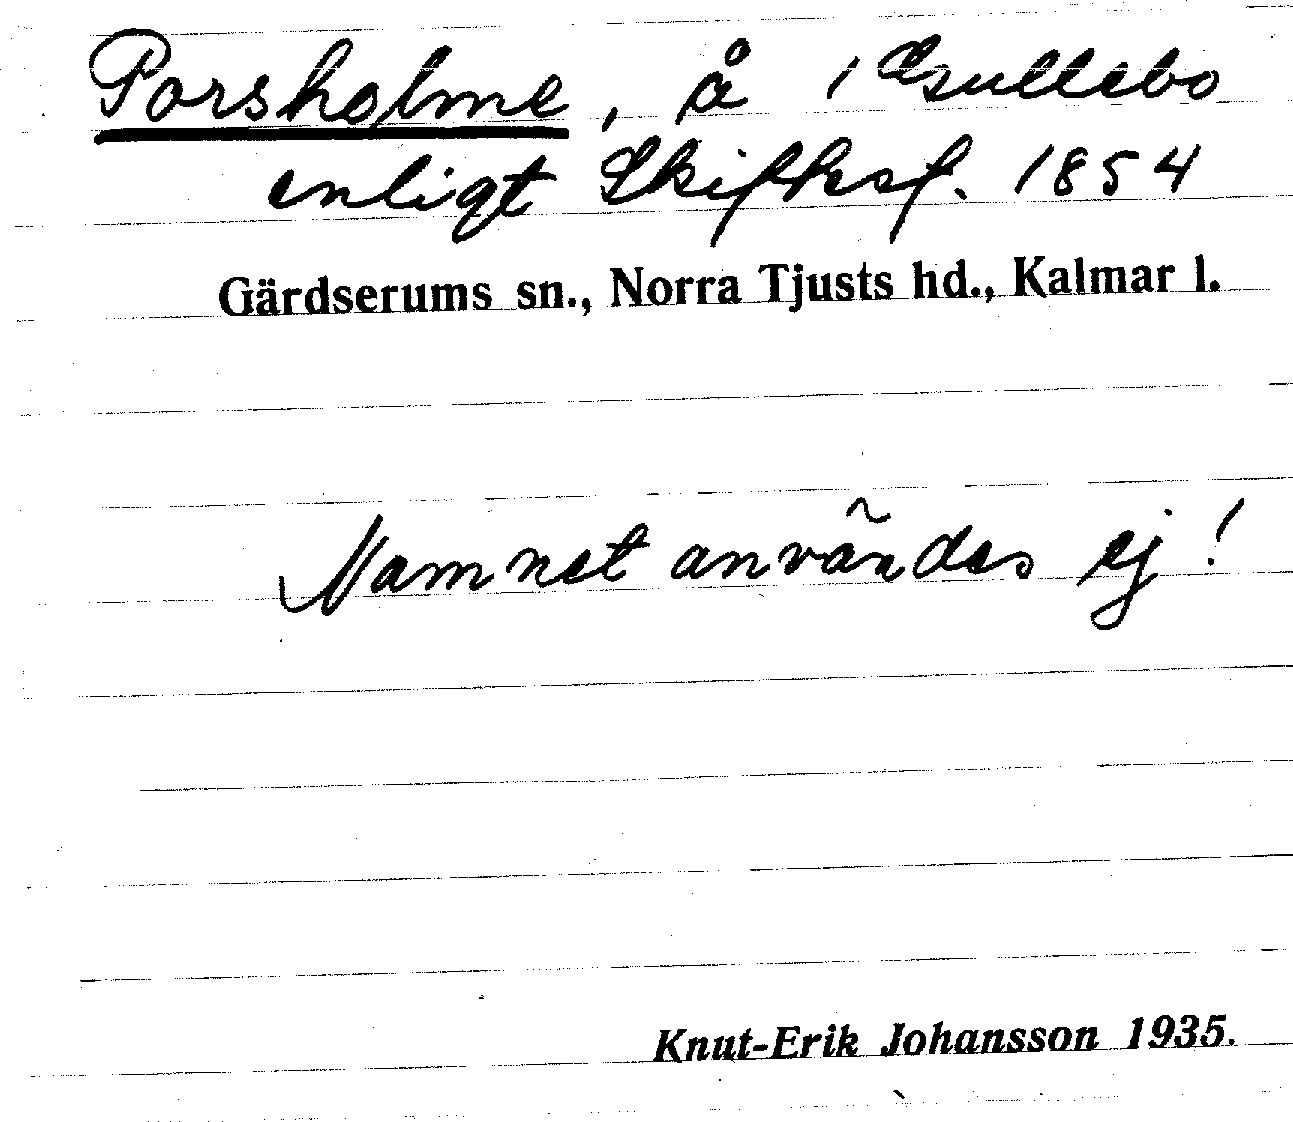 Porsholme, å i Gullebo
enligt Skiftesf. 1854
Gärdserums sn., Norra Tjusts hd., Kalmar l.
Namnet användes ej!
Knut-Erik Johansson 1935.